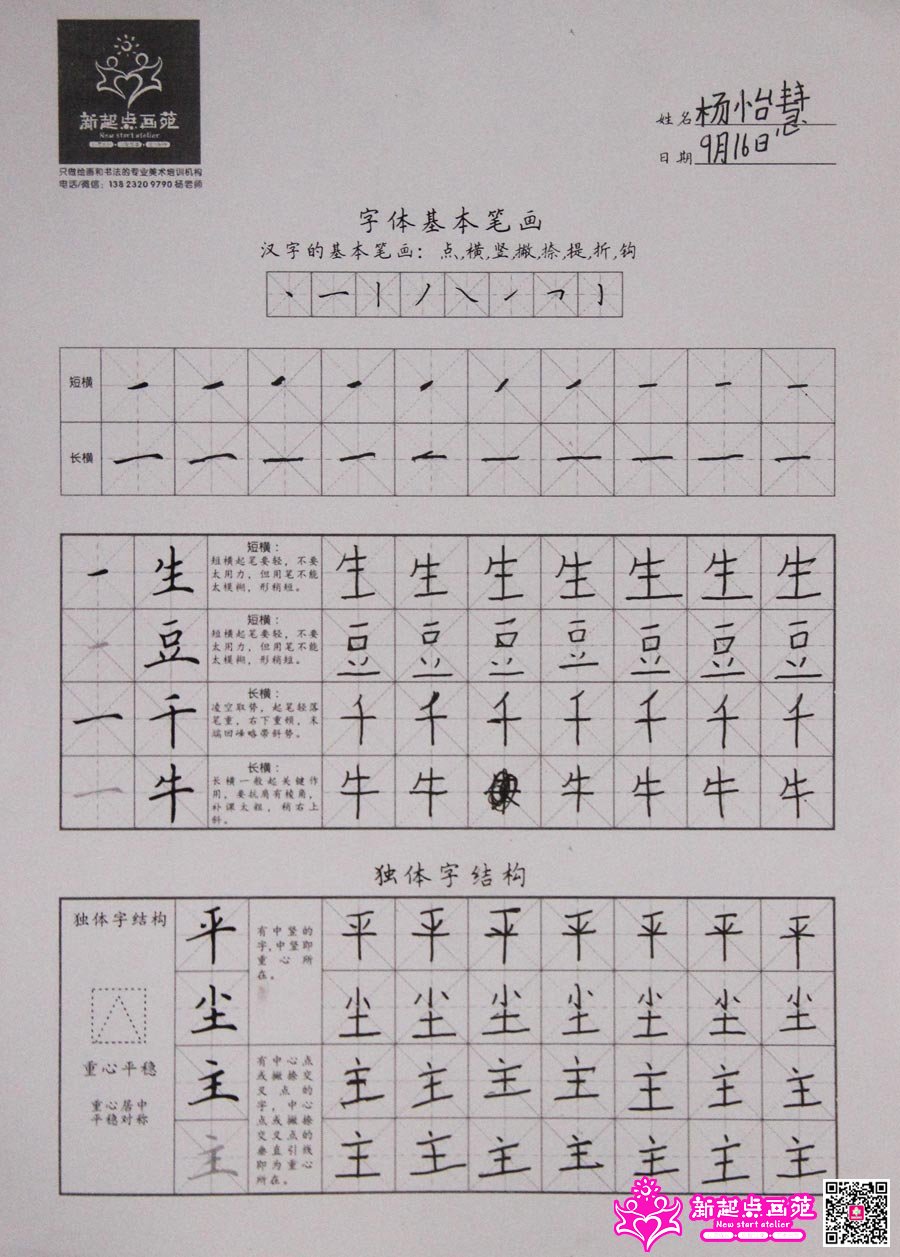 新起点画苑
New start atelier
只做绘画和书法的专业美术培训机构
电话/微信：138 2320 9790 杨老师
姓名 杨怡慧
日期 9月16日
字体基本笔画
汉字的基本笔画：点,横,竖,撇,捺,提,折,钩
短横
长横
一 生 短横：
短横起笔要轻，不要
太用力，但用笔不能
太模糊，形稍短。
生 生 生 生 生 生 生
一 豆 短横：
短横起笔要轻，不要
太用力，但用笔不能
太模糊，形稍短。
豆 豆 豆 豆 豆 豆 豆
一 干 长横：
凌空取势，起笔轻落
笔重，右下重顿，末
端回峰略带斜势。
千 千 千 千 千 千 千
一 牛 长横：
长横一般起关键作
用，要抗肩有棱角，
补课太粗，稍右上
斜。
牛 牛 牛 牛 牛 牛
独体字结构
独体字结构
重心平稳
重心居中
平稳对称
平 有中竖的
字,中竖即
重心所
在。
平 平 平 平 平 平 平
尘 尘 尘 尘 尘 尘 尘 尘
主 有中心点
或撇捺交
叉点的
字，中心
点或撇捺
交叉点的
垂直引线
即为重心
所在。
主 主 主 主 主 主 主
主 主 主 主 主 主 主 主
新起点画苑
New start atelier